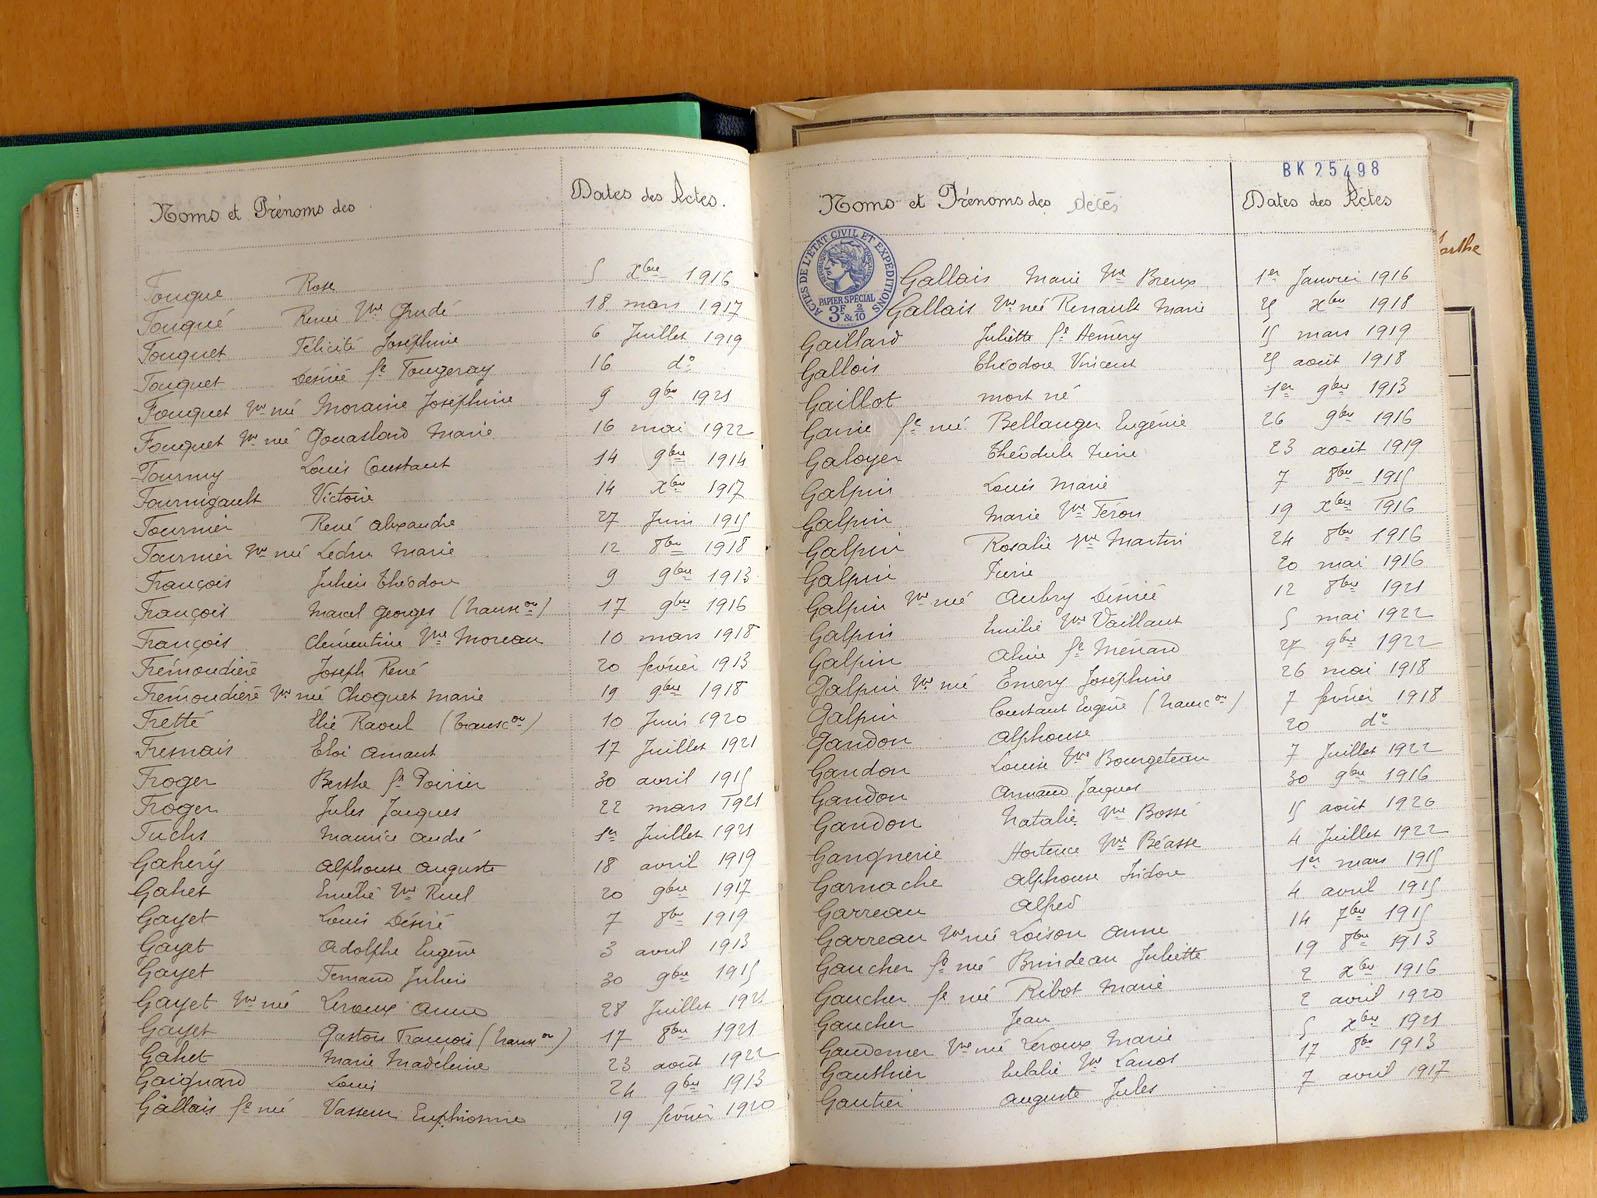 Noms et Prénoms des
Dates des Actes.
Fouqué Rose 5 xbre 1916
Fouqué Renée Vve Grudé 18 mars 1917
Fouquet Félicité Joséphine 6 Juillet 1919
Fouquet Désirée fe Fougeray 16 do
Fouquet Vve née Moraine Joséphine 9 9bre 1921
Fouquet Vve née Gouasland Marie 16 mai 1922
Fourmy Louis Constant 14 9bre 1914
Fournigault Victoire 14 xbre 1917
Fournier René alexandre 27 Juin 1915
Fournier Vve née Leduc Marie 12 8bre 1918
François Julien Théodore 9 9bre 1913
François Marcel Georges (transcon) 17 9bre 1916
François Clémentine Vve Moreau 10 mars 1918
Frémoudière Joseph René 20 février 1913
Frémoudière Vve née Choquet Marie 19 9bre 1918
Fretté Elie Raoul (transcon) 10 Juin 1920
Fresnais Eloi amant 17 Juillet 1921
Froger Berthe fe Poirier 30 avril 1915
Froger Jules Jacques 22 mars 1921
Fuchs Maurice andré 1er Juillet 1921
Gahéry alphonse auguste 18 avril 1919
Gahet Emélie Vve Ruel 20 9bre 1917
Gayet Louis Désiré 7 8bre 1919
Gayet Adolphe Eugène 3 avril 1913
Gayet Fernand Julien 30 9bre 1915
Gayet Vve née Leroux anne 28 Juillet 1921
Gayet Gaston François (transcon) 17 8bre 1921
Gahet Marie Madeleine 23 août 1922
Gaignard Louis 24 9bre 1913
Gallais fe née Vasseur Euphrosine 19 février 1920
BK 25498
Noms et Prénoms des Décès
Dates des Actes
ACTES DE L'ETAT CIVIL ET EXPEDITIONS
PAPIER SPÉCIAL
3F & 2/10
Gallais Marie Vve Breux 1er Janvier 1916
Gallais Vve née Renault Marie 25 xbre 1918
Gaillard Juliette fe Hemery 15 mars 1919
Gallois Théodore Vincent 25 août 1918
Gaillot mort né 1er 9bre 1913
Ganie fe née Bellanger Eugénie 26 9bre 1916
Galoyer Théodule Pierre 23 août 1919
Galpin Louis Marie 7 8bre 1915
Galpin Marie Vve Feron 19 xbre 1916
Galpin Rosalie Vve Martin 24 8bre 1916
Galpin Pierre 20 mai 1916
Galpin Vve née Aubry Désirée 12 8bre 1921
Galpin Emilie Vve Vaillant 5 mai 1922
Galpin Aline fe Ménard 27 9bre 1922
Galpin Vve née Emery Joséphine 26 mai 1918
Galpin Constant Eugène (transcon) 7 février 1918
Gandon Alphonse 20 do
Gandon Louise Vve Bourgeteau 7 Juillet 1922
Gandon Armand Jacques 30 9bre 1916
Gandon Natalie Vve Bossé 15 août 1920
Gangnerie Hortence Vve Béasse 4 Juillet 1922
Garnache Alphonse Isidore 1er mars 1915
Garreau Alfred 4 avril 1915
Garreau Vve née Loison Anne 14 7bre 1915
Gaucher fe née Brindeau Juliette 19 8bre 1913
Gaucher fe née Ribot Marie 2 xbre 1916
Gaucher Jean 2 avril 1920
Gaudemer Vve née Leroux Marie 5 xbre 1921
Gauthier Eulalie Vve Lanos 17 8bre 1913
Gautier auguste Jules 7 avril 1917